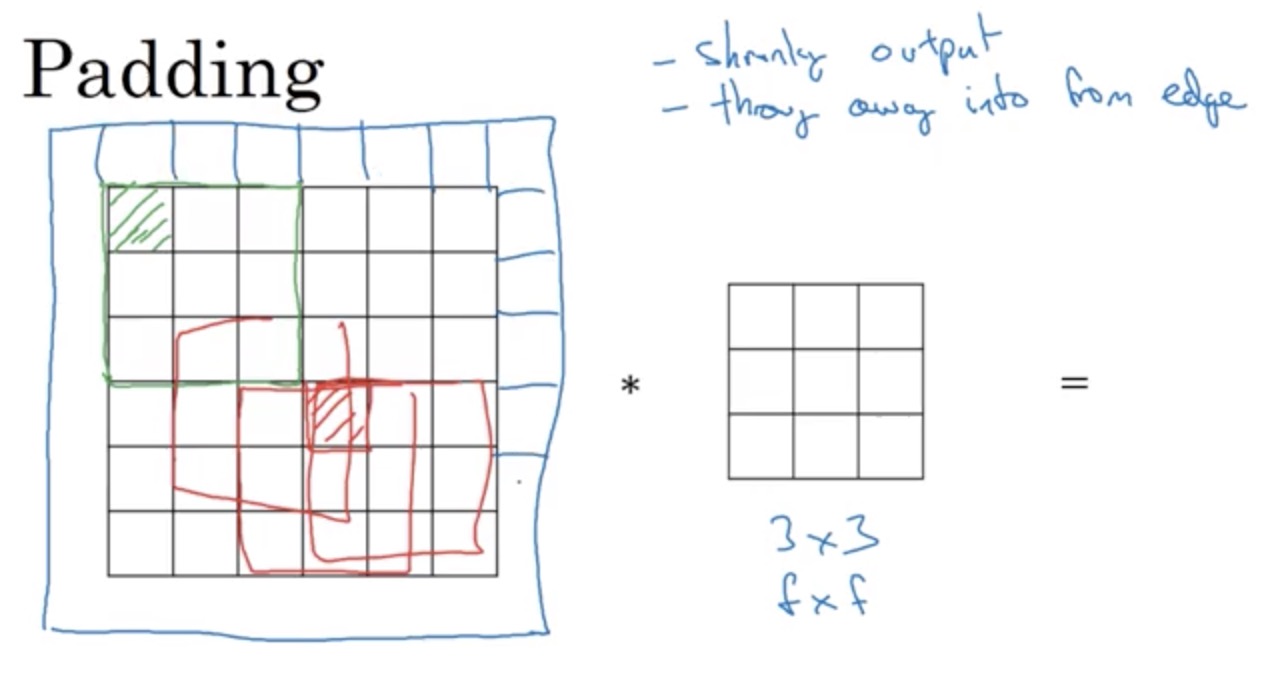 Padding
- shrinky output
- throw away info from edge
*
=
3x3
fxf